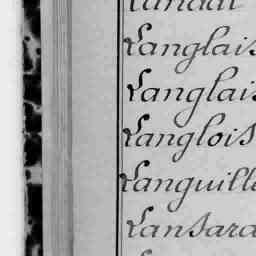 Landai
Langlais
Langlais
Langlois
Languille
Lansara